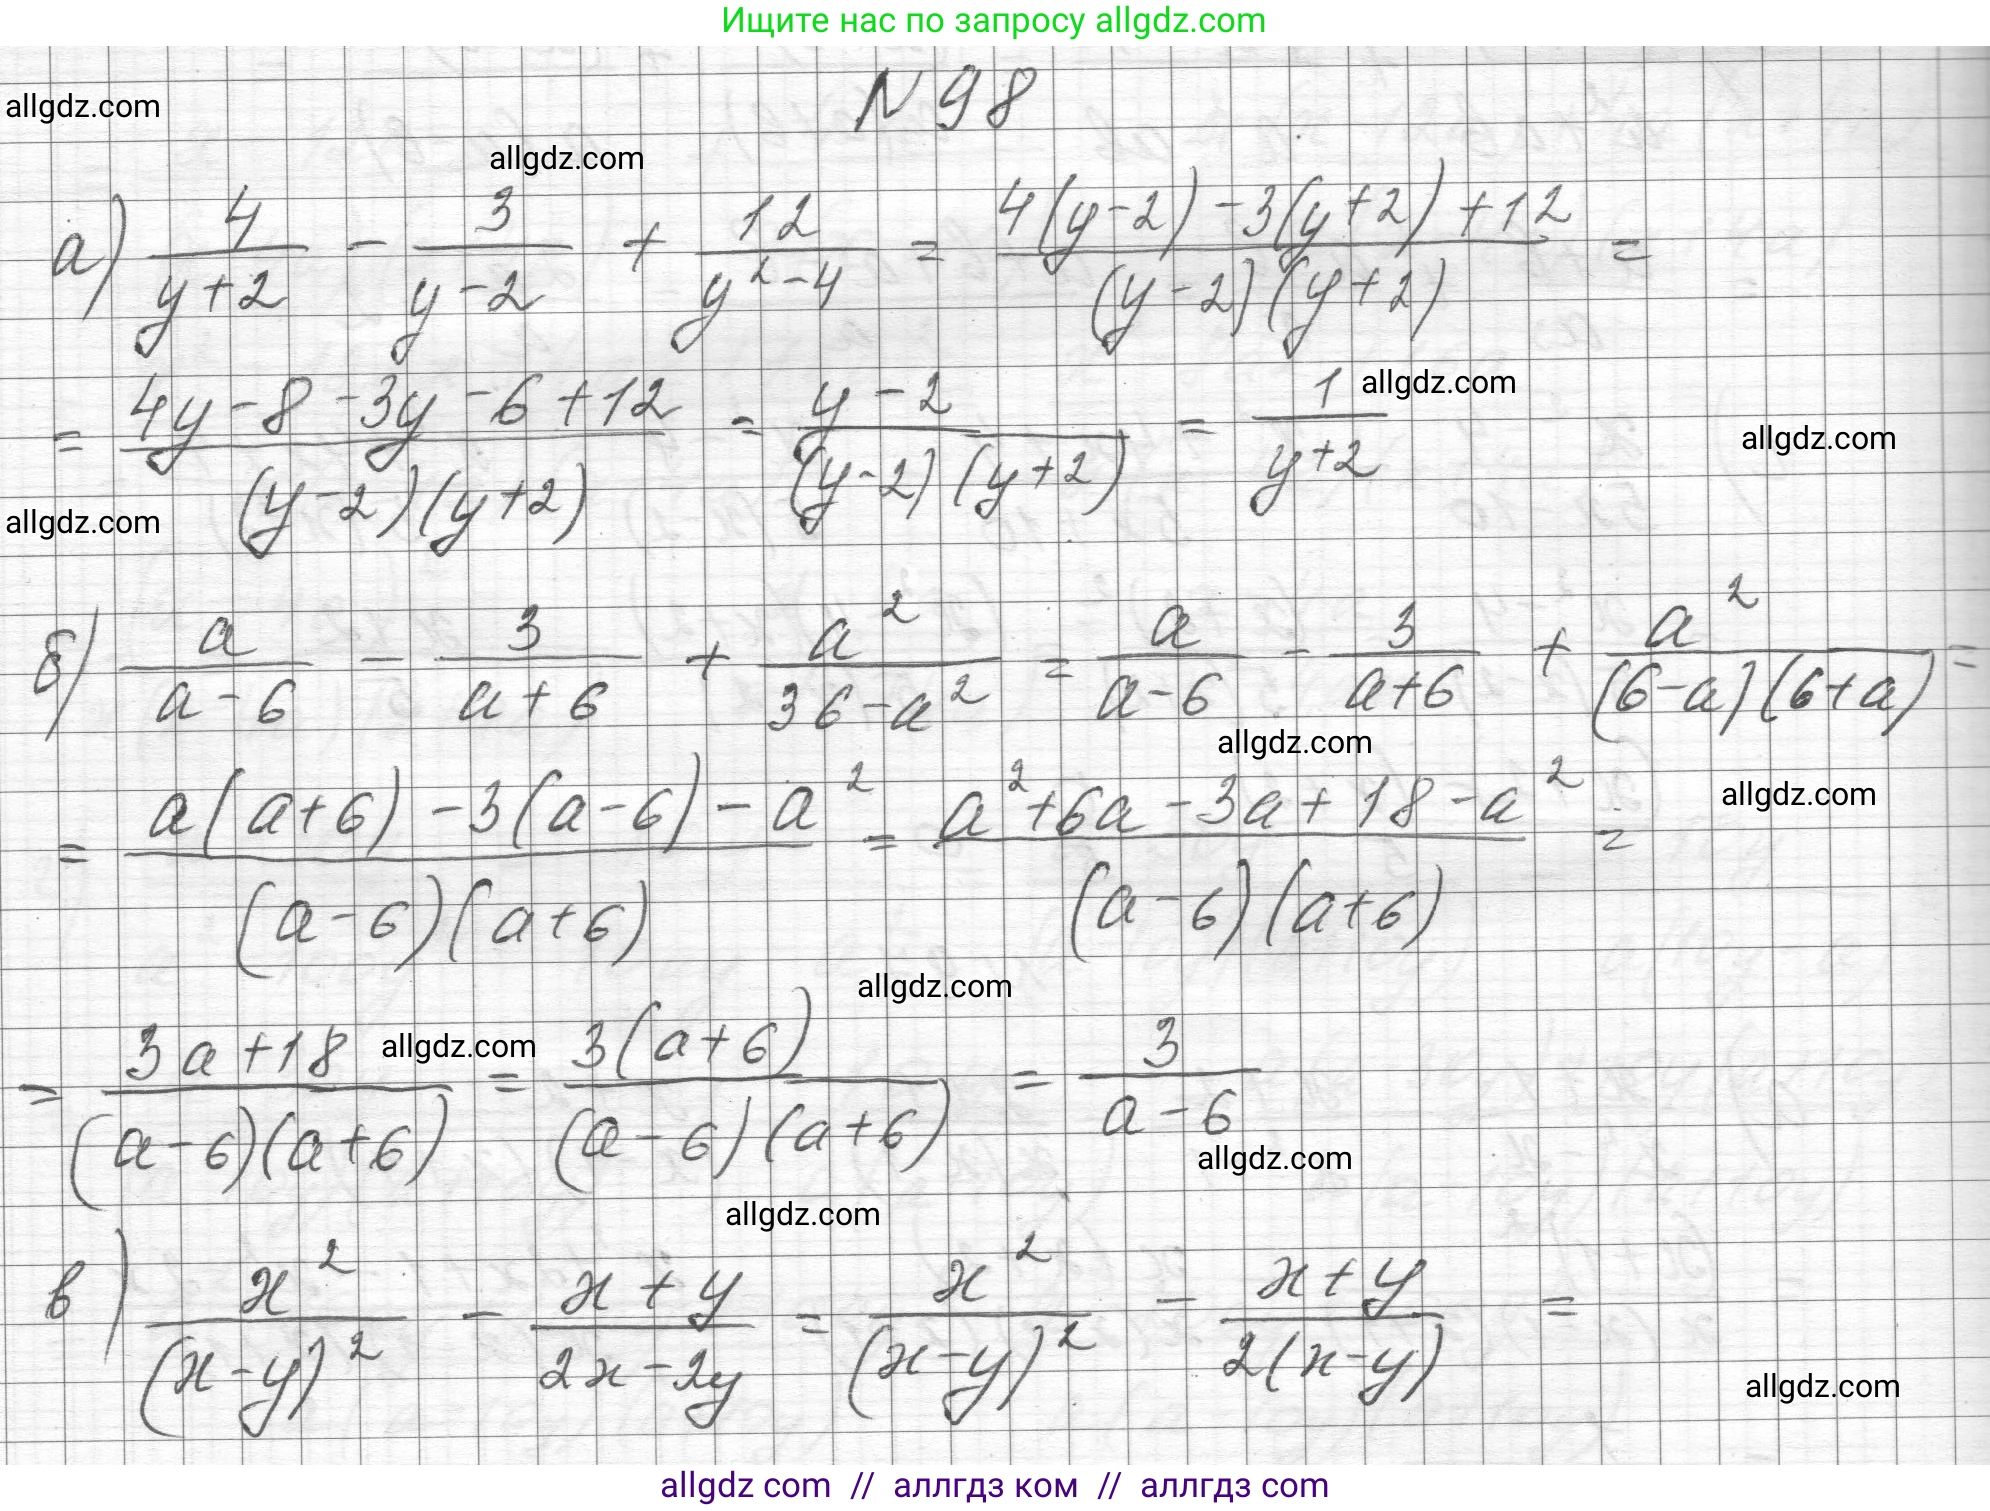 Ищите нас по запросу allgdz.com
N 98
allgdz.com
allgdz.com
а) 4/(y+2) - 3/(y-2) + 12/(y²-4) = (4(y-2)-3(y+2)+12)/((y-2)(y+2)) =
allgdz.com
= (4y-8-3y-6+12)/((y-2)(y+2)) = (y-2)/((y-2)(y+2)) = 1/(y+2)
allgdz.com
allgdz.com
б) a/(a-6) - 3/(a+6) + a²/(36-a²) = a/(a-6) - 3/(a+6) + a²/((6-a)(6+a)) =
allgdz.com
allgdz.com
= (a(a+6)-3(a-6)-a²)/((a-6)(a+6)) = (a²+6a-3a+18-a²)/((a-6)(a+6)) =
allgdz.com
allgdz.com
= (3a+18)/((a-6)(a+6)) = 3(a+6)/((a-6)(a+6)) = 3/(a-6)
allgdz.com
allgdz.com
в) x²/(x-y)² - (x+y)/(2x-2y) = x²/(x-y)² - (x+y)/(2(x-y)) =
allgdz.com
allgdz com // аллгдз ком // аллгдз com